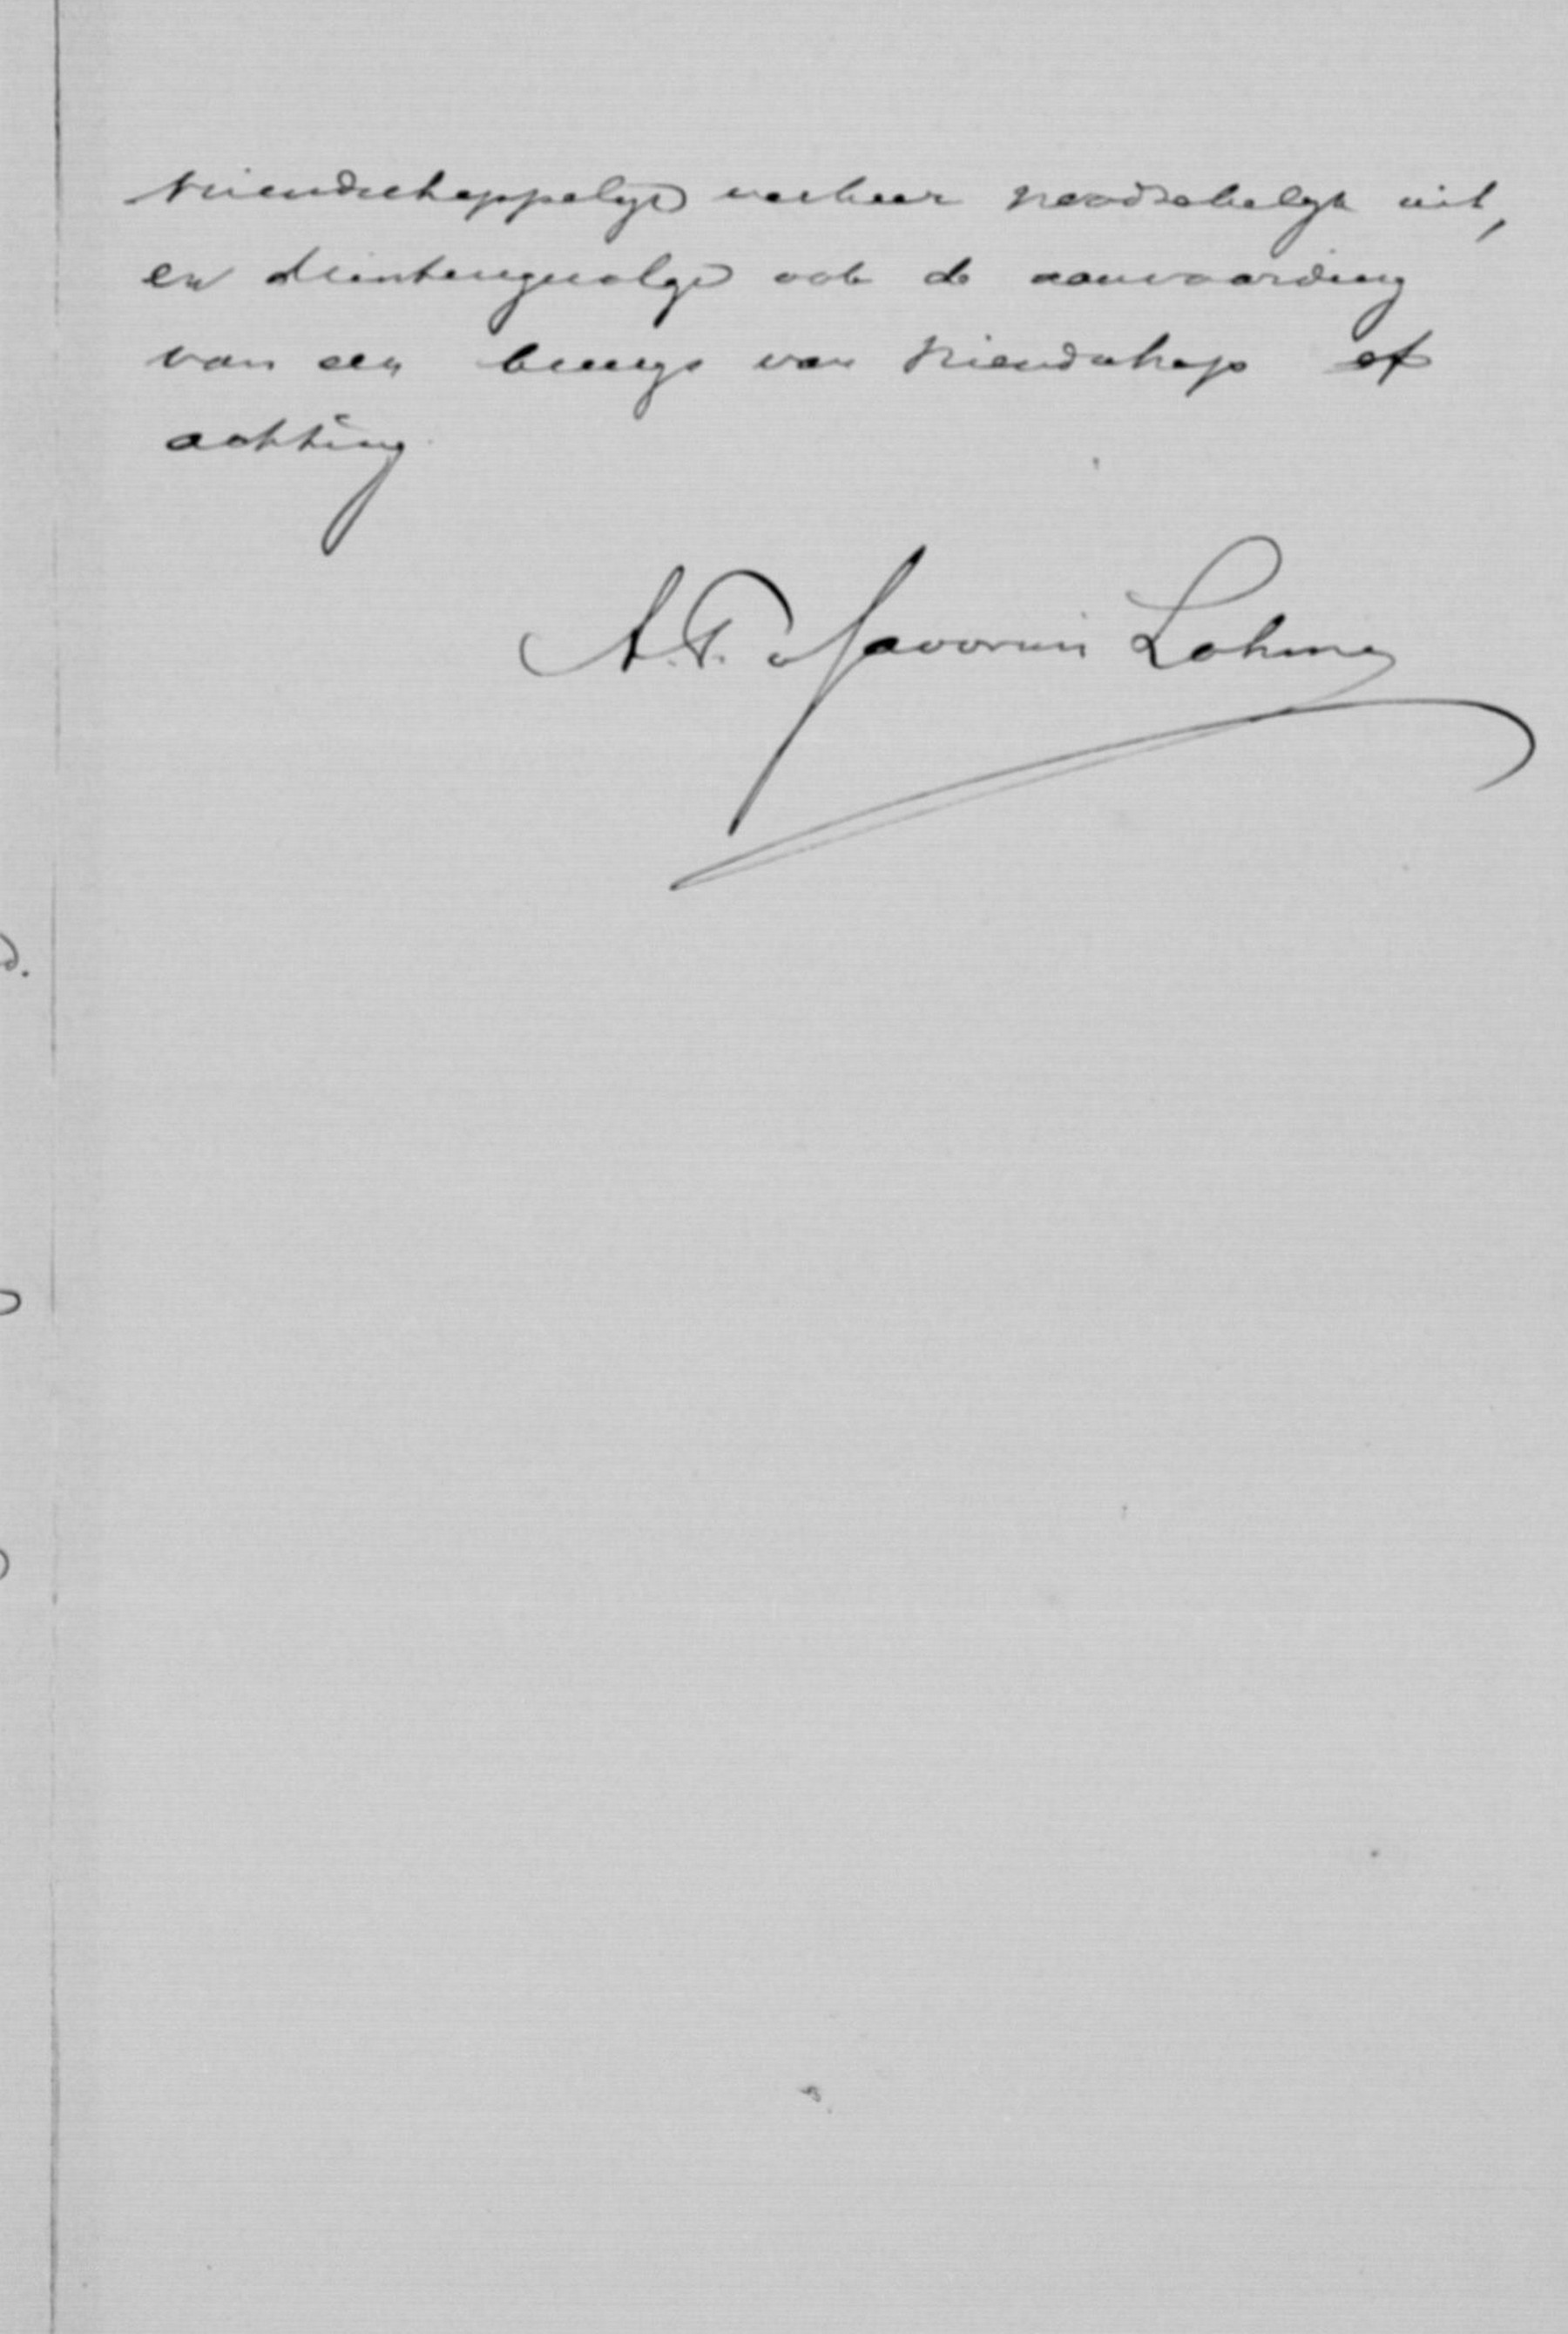 vriendschappelijk verkeer noodzakelijk uit,
en dientengevolge ook de aanvaarding
van een bewijs van vriendschap of
achting.
A.F. d Savornin Lohman